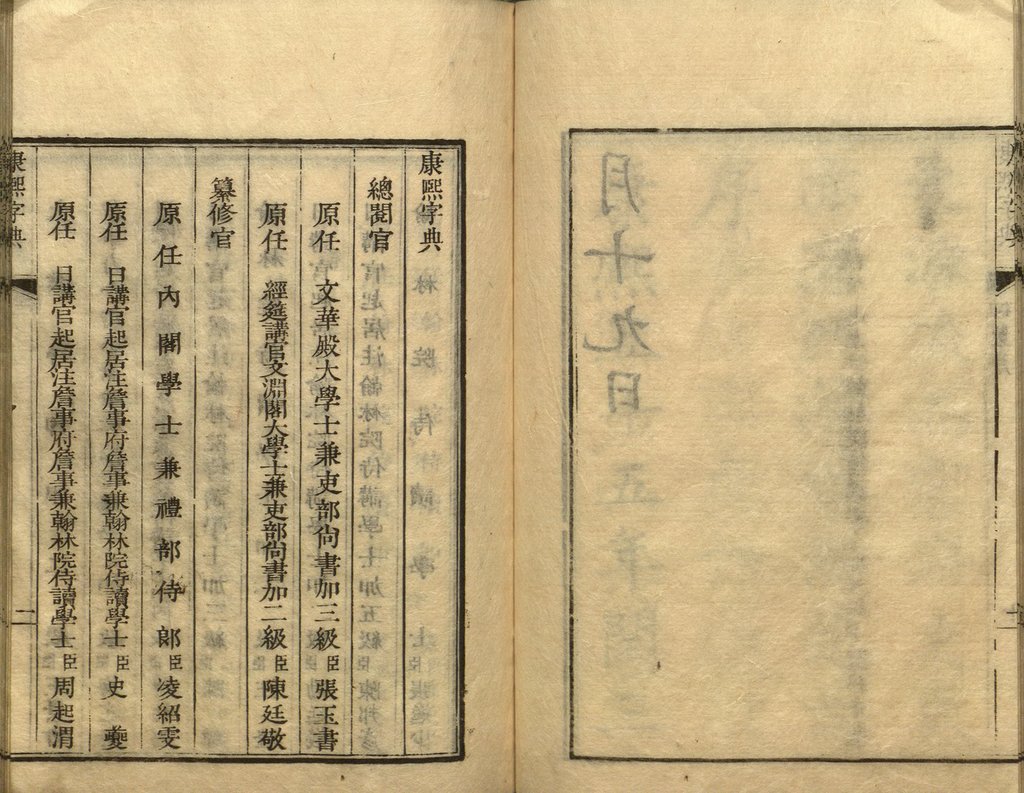 康熙字典
總閱官
原任 文華殿大學士兼吏部尚書加三級臣張玉書
原任 經筵講官文淵閣大學士兼吏部尚書加二級臣陳廷敬
纂修官
原任內閣學士兼禮部侍郎臣凌紹雯
原任 日講官起居注詹事府詹事兼翰林院侍讀學士臣史夔
原任 日講官起居注詹事府詹事兼翰林院侍讀學士臣周起渭
康熙字典
二